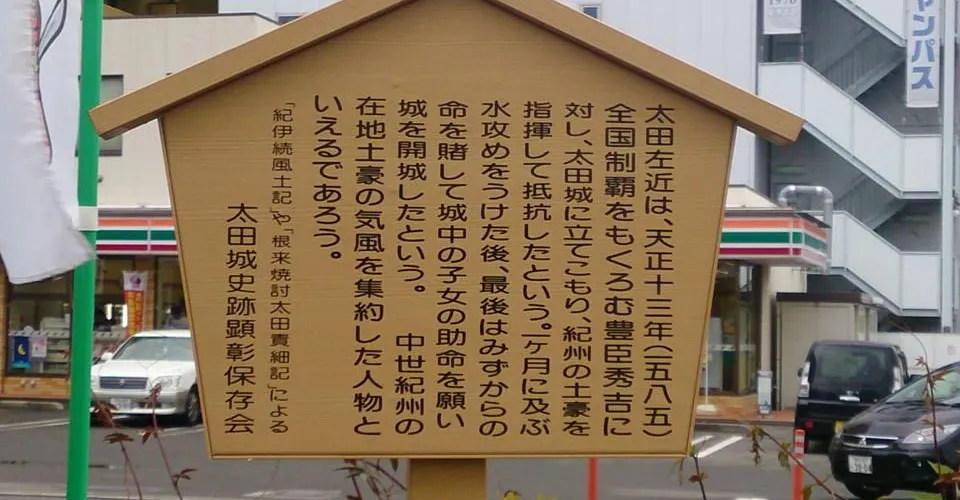 太田左近は、天正十三年(一五八五)
全国制覇をもくろむ豊臣秀吉に
対し、太田城に立てこもり、紀州の土豪を
指揮して抵抗したという。一ヶ月に及ぶ
水攻めをうけた後、最後はみずからの
命を賭して城中の子女の助命を願い
城を開城したという。 中世紀州の
在地土豪の気風を集約した人物と
いえるであろう。
「紀伊続風土記」や「根来焼討太田責細記」による
太田城史跡顕彰保存会
ャンパス